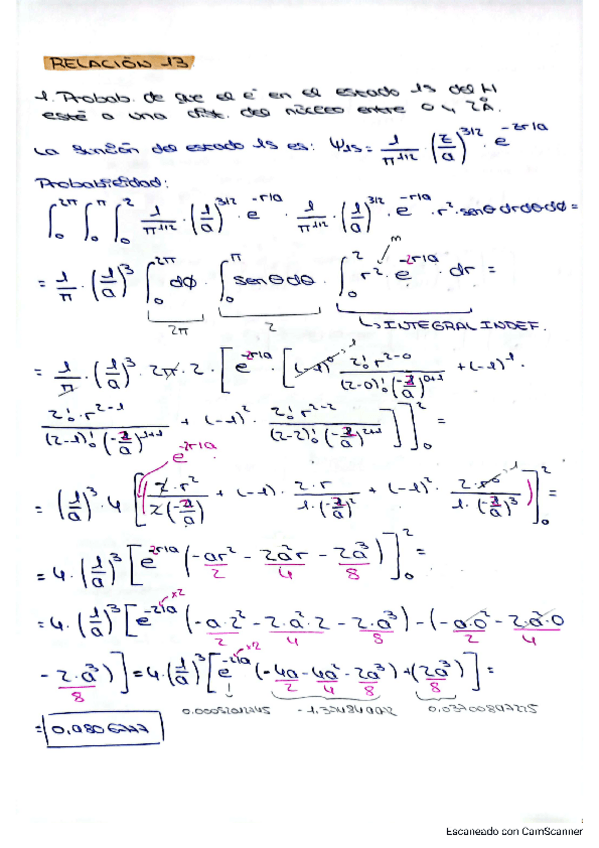 RELACIÓN 13
1. Probab. de que el e⁻ en el estado 1s del H
esté a una dist. del núcleo entre 0 y 2Å.
La función del estado 1s es: Ψ1s = 1/π^1/2 · (z/a)^3/2 · e^-zr/a
Probabilidad:
∫₀^2π ∫₀^π ∫₀^2 1/π^1/2 · (1/a)^3/2 · e^-r/a · 1/π^1/2 · (1/a)^3/2 · e^-r/a · r² · senθ dr dθ dϕ =
= 1/π · (1/a)³ ∫₀^2π dϕ · ∫₀^π senθ dθ · ∫₀^2 r² · e^-2r/a dr =
2π 2 ↳ INTEGRAL INDEF.
= 1/π · (1/a)³ · 2π · 2 · [e^-2r/a · [(-1)⁰ 2! · r^2-0 / (2-0)! (-2/a)^0+1 + (-1)¹ ·
2! · r^2-1 / (2-1)! (-2/a)^1+1 + (-1)² · 2! · r^2-2 / (2-2)! (-2/a)^2+1 ]]₀² =
e^-2r/a
= (1/a)³ · 4 [(2 · r² / 2(-2/a) + (-1) · 2 · r / 1 · (-2/a)² + (-1)² · 2 · r⁰ / 1 · (-2/a)³)]₀² =
= 4 · (1/a)³ [e^-2r/a (-ar²/2 - 2a²r/4 - 2a³/8)]₀² =
= 4 · (1/a)³ [e^-2/a x2 (-a · 2²/2 - 2 · a² · 2/4 - 2 · a³/8) - (-a · 0²/2 - 2 · a² · 0/4
- 2 · a³/8)] = 4 · (1/a)³ [e^-2/a x2 (-4a/2 - 4a²/4 - 2a³/8) + (2a³/8)] =
= 0,9806777
Escaneado con CamScanner